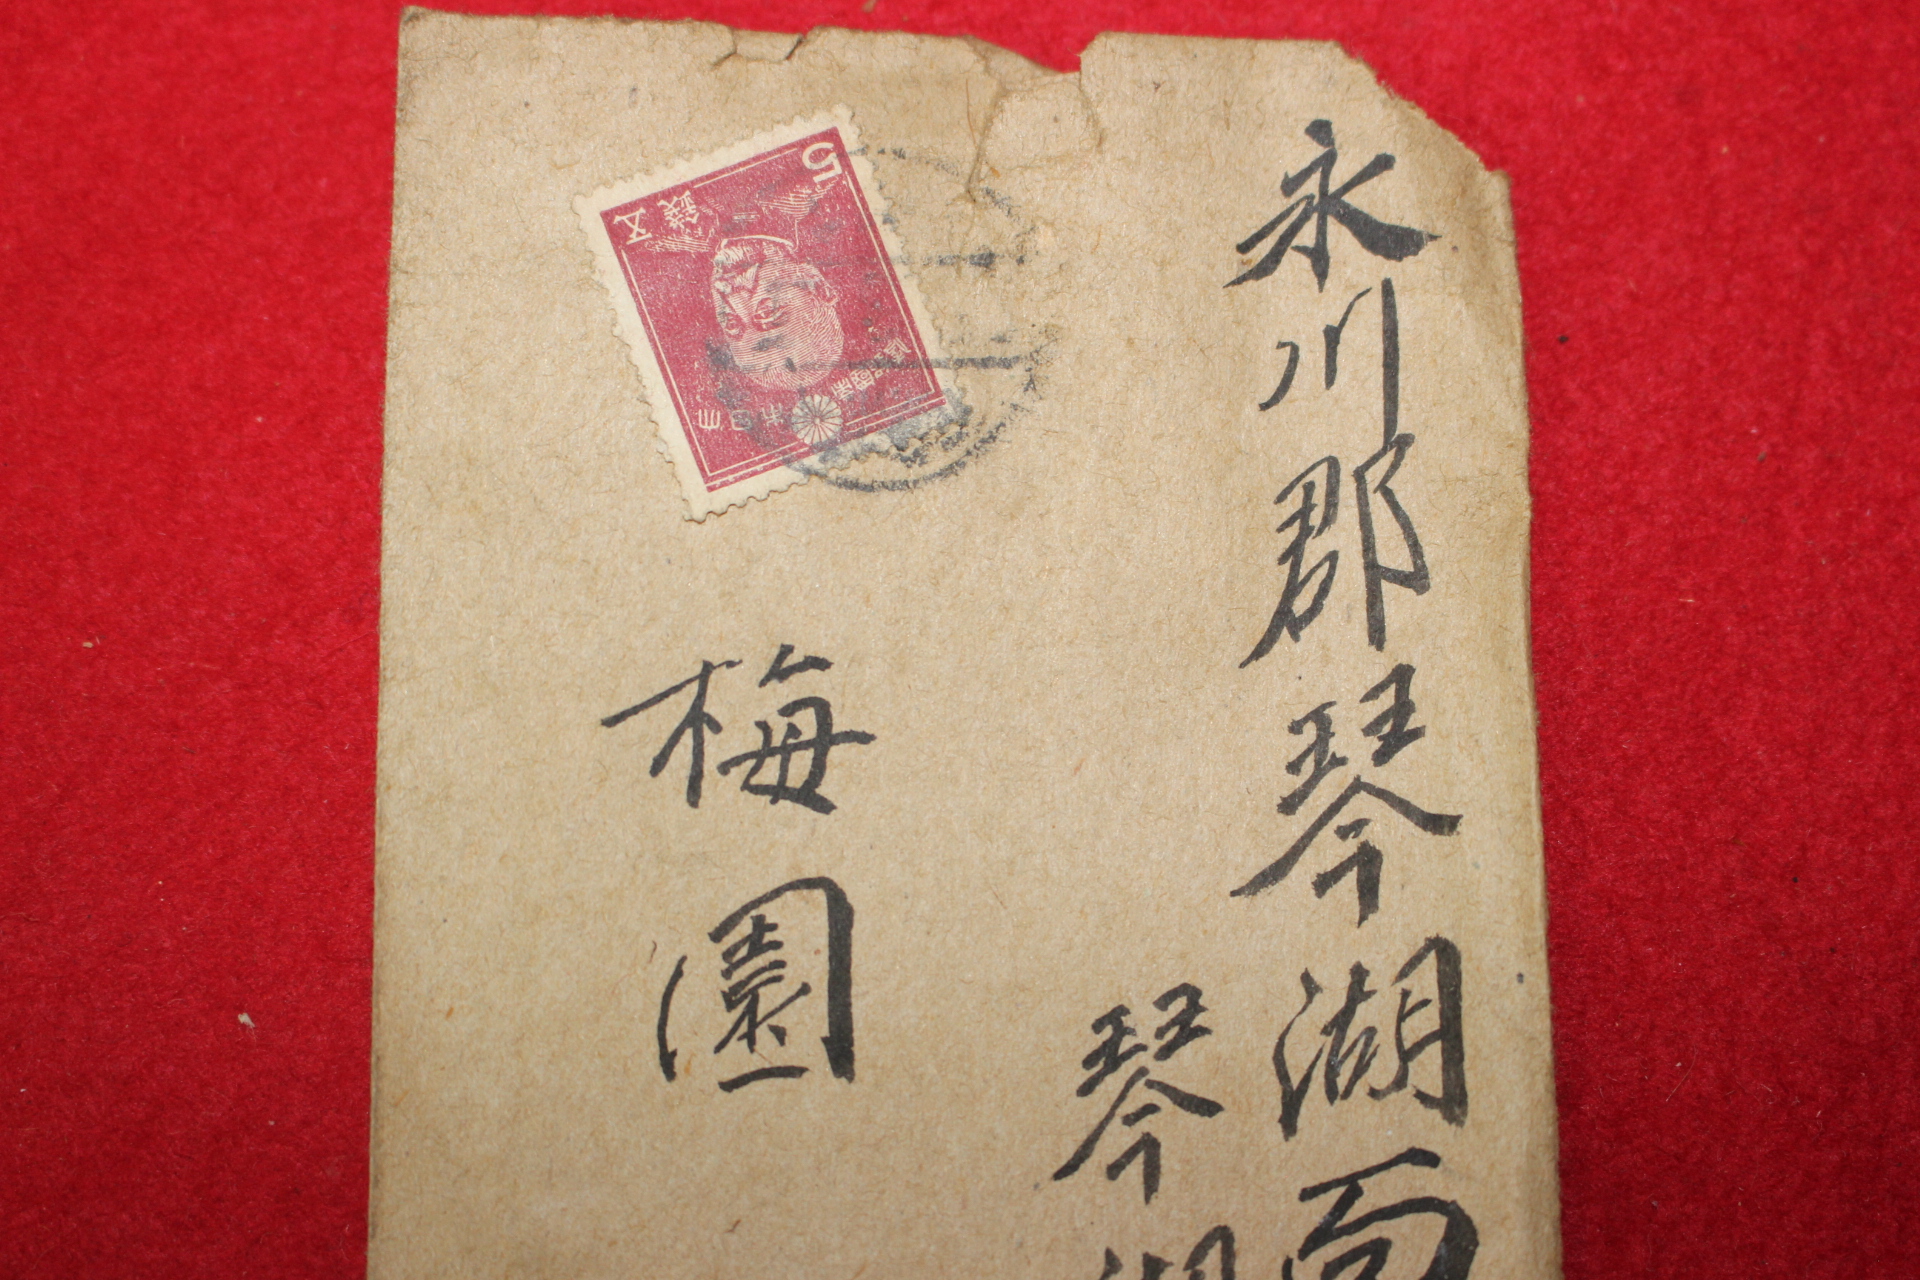 永川郡琴湖面
琴湖
梅園
5
五錢
大日本帝國郵便